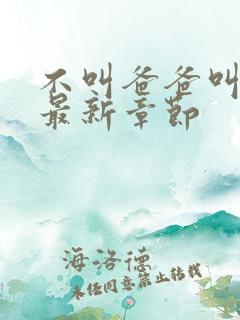 不叫爸爸叫
最新章节
海洛德
未经同意禁止转载